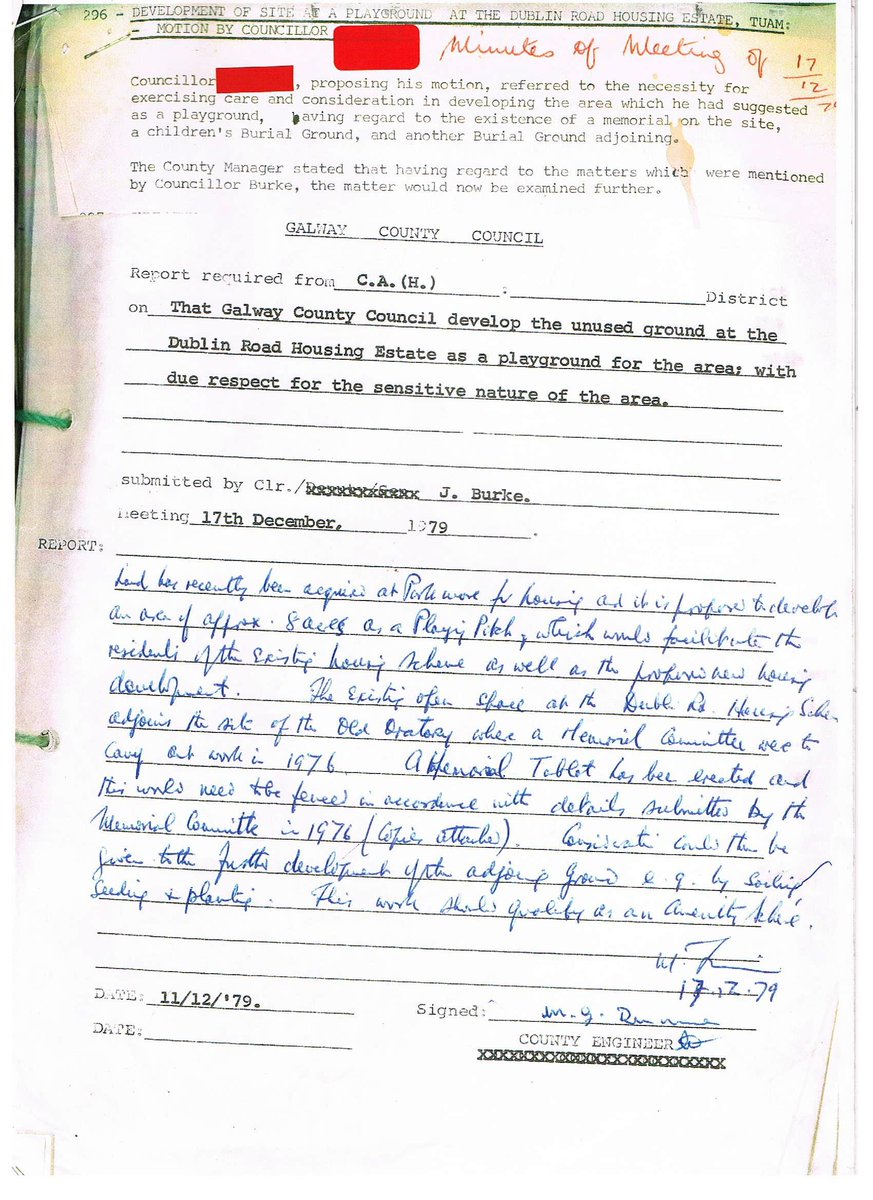 296 - DEVELOPMENT OF SITE AT A PLAYGROUND AT THE DUBLIN ROAD HOUSING ESTATE, TUAM:
- MOTION BY COUNCILLOR
Minutes of Meeting of 17/12/7
Councillor , proposing his motion, referred to the necessity for
exercising care and consideration in developing the area which he had suggested
as a playground, having regard to the existence of a memorial on the site,
a children's Burial Ground, and another Burial Ground adjoining.
The County Manager stated that having regard to the matters which were mentioned
by Councillor Burke, the matter would now be examined further.
GALWAY COUNTY COUNCIL
Report required from C.A.(H.) : District
on That Galway County Council develop the unused ground at the
Dublin Road Housing Estate as a playground for the area; with
due respect for the sensitive nature of the area.
submitted by Clr./ J. Burke.
Meeting 17th December, 1979 .
REPORT:
Land has recently been acquired at Parkmore for housing and it is proposed to develop
an area of approx. 8 acres as a Playing Pitch, which would facilitate the
residents of the existing housing scheme as well as the proposed new housing
development. The existing open space at the Dublin Rd. Housing Scheme
adjoins the site of the Old Oratory where a Memorial Committee were to
carry out work in 1976. A Memorial Tablet has been erected and
this would need to be fenced in accordance with details submitted by the
Memorial Committe in 1976 (Copies attached). Consideration could then be
given to the further development of the adjoing Ground e.g. by Soiling,
Seeding & planting. This work should qualify as an Amenity Scheme.
17.12.79
DATE: 11/12/'79.
Signed:
COUNTY ENGINEER
DATE: